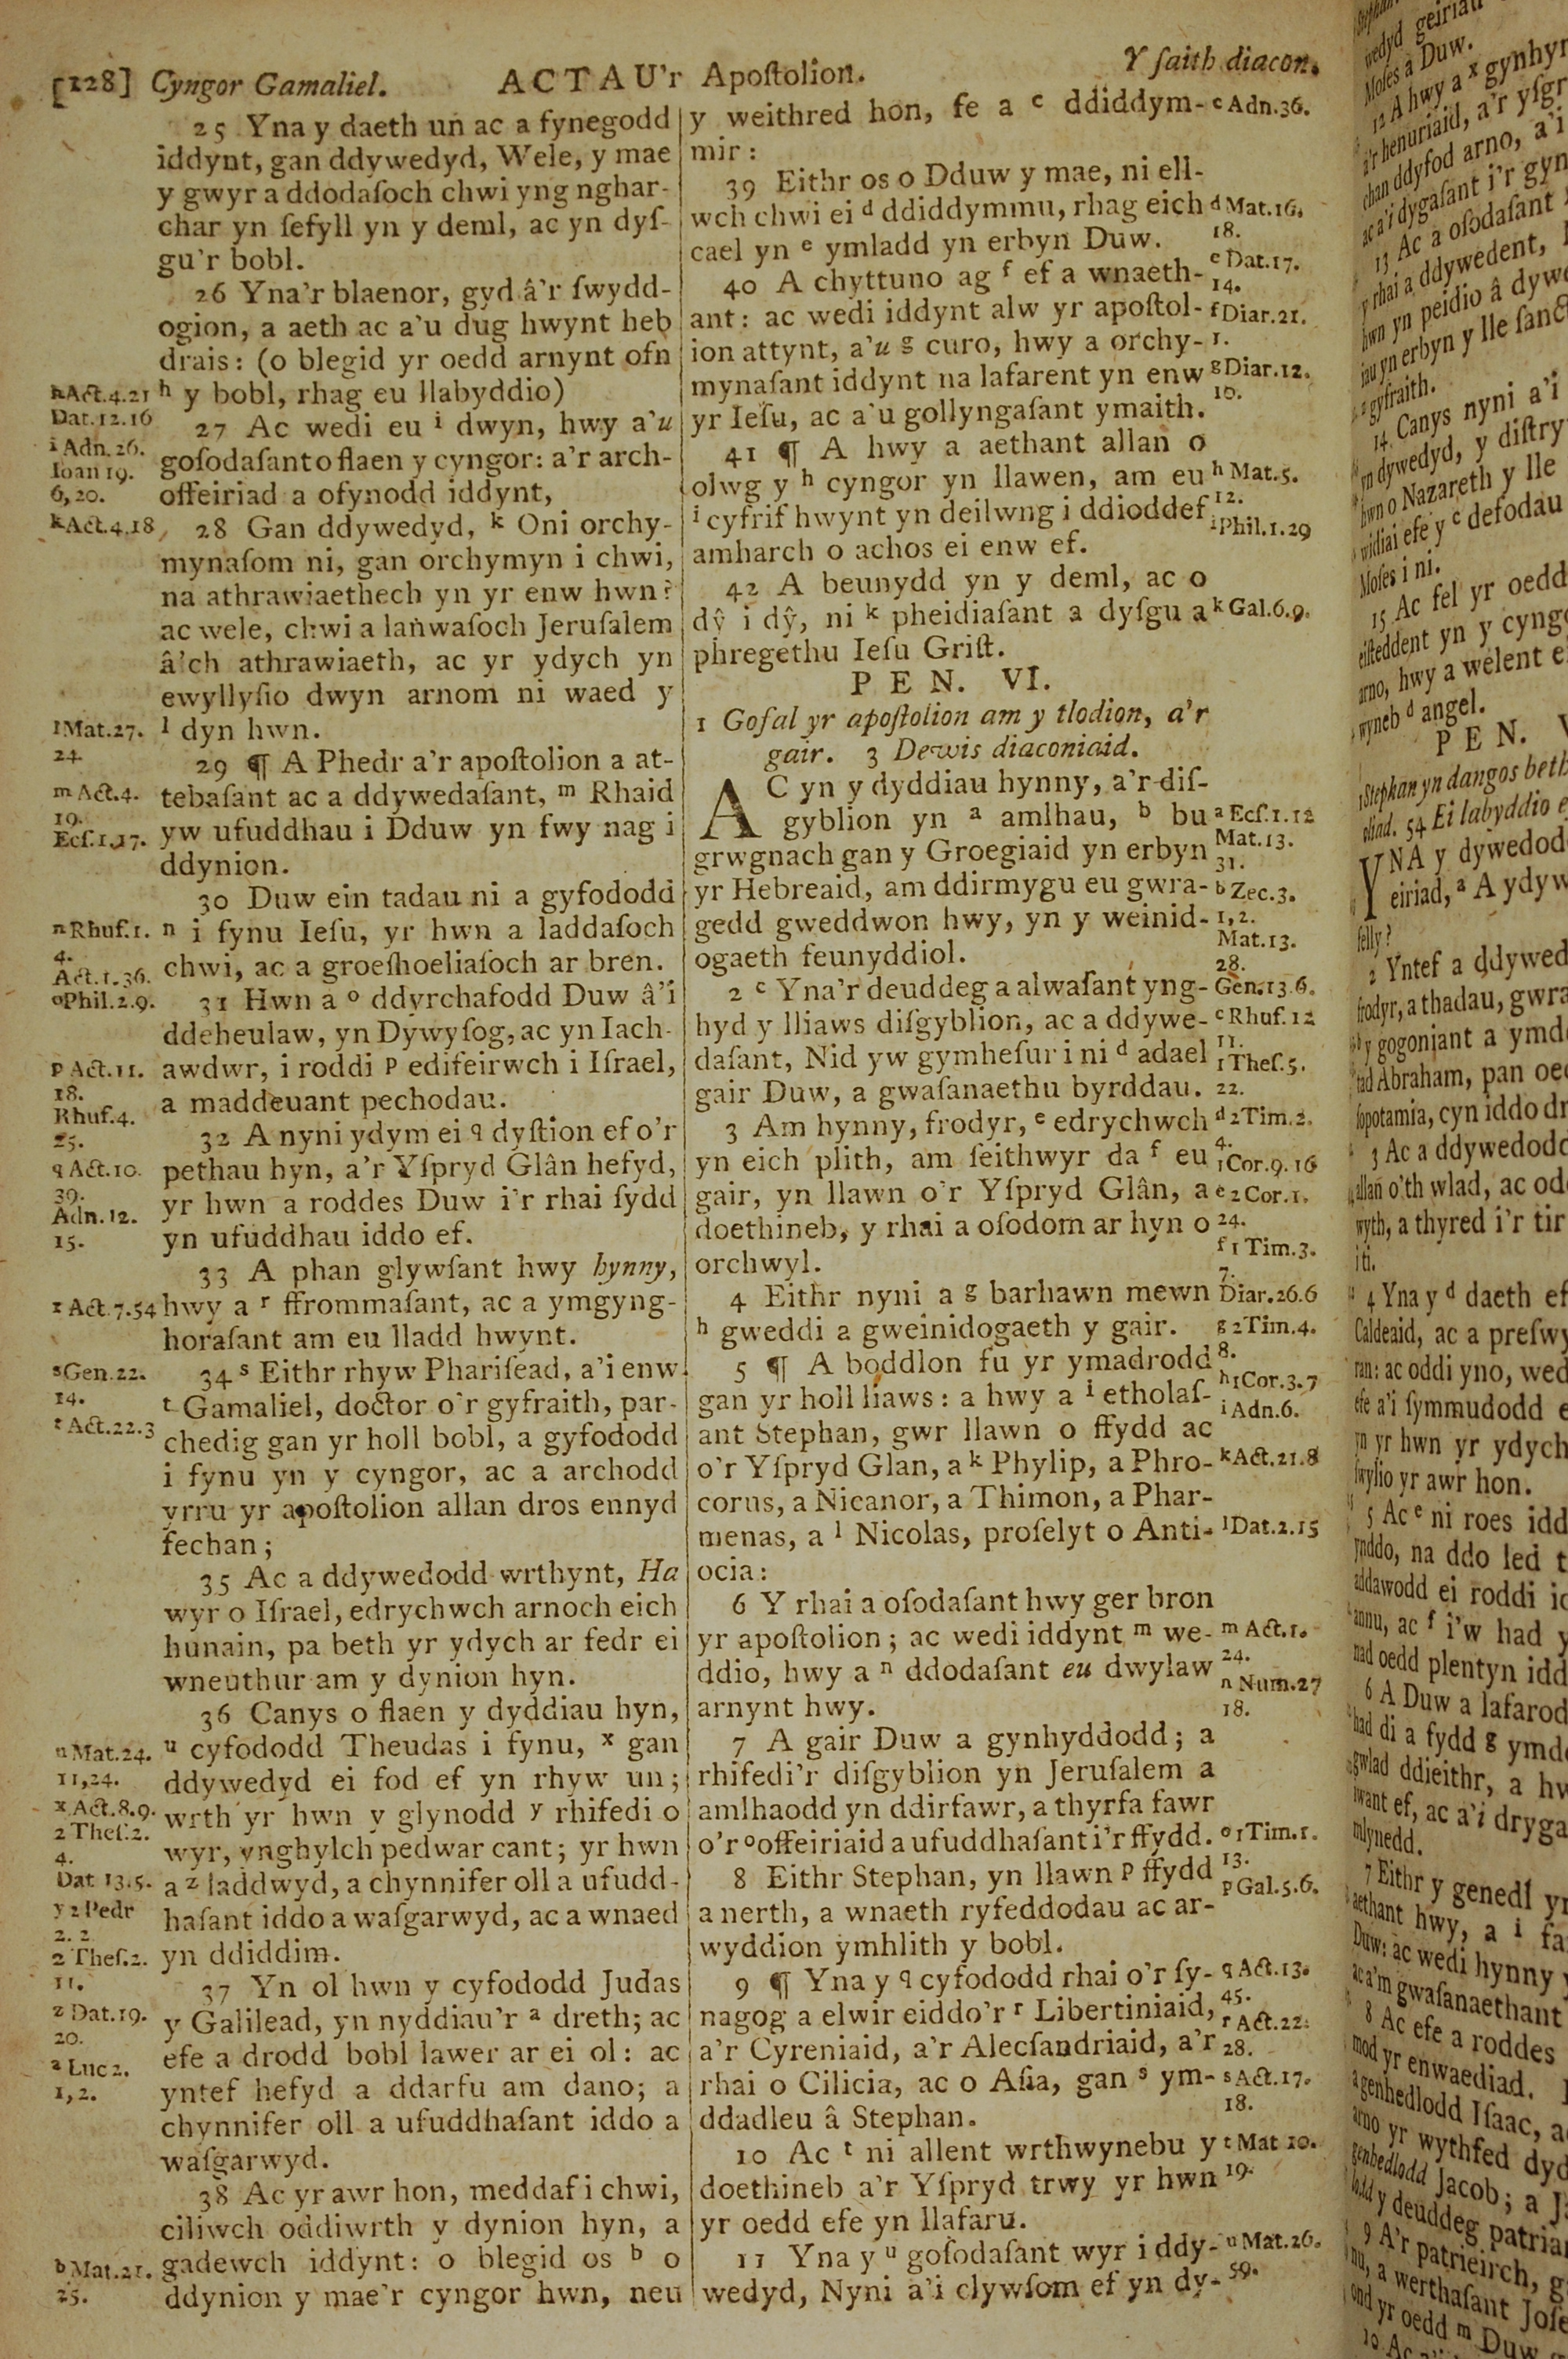 [128] Cyngor Gamaliel. ACTAU'r Apoſtolion. Y ſaith diacon.
25 Yna y daeth un ac a fynegodd
iddynt, gan ddywedyd, Wele, y mae
y gwyr a ddodaſoch chwi yng nghar-
char yn ſefyll yn y deml, ac yn dyſ-
gu'r bobl.
26 Yna'r blaenor, gyd â'r ſwydd-
ogion, a aeth ac a'u dug hwynt heb
drais: (o blegid yr oedd arnynt ofn
h y bobl, rhag eu llabyddio)
27 Ac wedi eu i dwyn, hwy a'u
goſodaſant o flaen y cyngor: a'r arch-
offeiriad a ofynodd iddynt,
28 Gan ddywedyd, k Oni orchy-
mynaſom ni, gan orchymyn i chwi,
na athrawiaethech yn yr enw hwn?
ac wele, chwi a lanwaſoch Jeruſalem
â'ch athrawiaeth, ac yr ydych yn
ewyllyſio dwyn arnom ni waed y
l dyn hwn.
29 ¶ A Phedr a'r apoſtolion a at-
tebaſant ac a ddywedaſant, m Rhaid
yw ufuddhau i Dduw yn fwy nag i
ddynion.
30 Duw ein tadau ni a gyfododd
n i fynu Ieſu, yr hwn a laddaſoch
chwi, ac a groeſhoeliaſoch ar bren.
31 Hwn a o ddyrchafodd Duw â'i
ddeheulaw, yn Dywyſog, ac yn Iach-
awdwr, i roddi p edifeirwch i Iſrael,
a maddeuant pechodau.
32 A nyni ydym ei q dyſtion ef o'r
pethau hyn, a'r Yſpryd Glân hefyd,
yr hwn a roddes Duw i'r rhai ſydd
yn ufuddhau iddo ef.
33 A phan glywſant hwy hynny,
hwy a r ffrommaſant, ac a ymgyng-
horaſant am eu lladd hwynt.
34 s Eithr rhyw Phariſead, a'i enw
t Gamaliel, doctor o'r gyfraith, par-
chedig gan yr holl bobl, a gyfododd
i fynu yn y cyngor, ac a archodd
yrru yr apoſtolion allan dros ennyd
fechan;
35 Ac a ddywedodd wrthynt, Ha
wyr o Iſrael, edrychwch arnoch eich
hunain, pa beth yr ydych ar fedr ei
wneuthur am y dynion hyn.
36 Canys o flaen y dyddiau hyn,
u cyfododd Theudas i fynu, x gan
ddywedyd ei fod ef yn rhyw un;
wrth yr hwn y glynodd y rhifedi o
wyr, ynghylch pedwar cant; yr hwn
a z laddwyd, a chynnifer oll a ufudd-
haſant iddo a waſgarwyd, ac a wnaed
yn ddiddim.
37 Yn ol hwn y cyfododd Judas
y Galilead, yn nyddiau'r a dreth; ac
efe a drodd bobl lawer ar ei ol: ac
yntef hefyd a ddarfu am dano; a
chynnifer oll a ufuddhaſant iddo a
waſgarwyd.
38 Ac yr awr hon, meddaf i chwi,
ciliwch oddiwrth y dynion hyn, a
gadewch iddynt: o blegid os b o
ddynion y mae'r cyngor hwn, neu
h Act.4.21
Dat.12.16
i Adn.26.
Ioan 19.
6, 20.
k Act.4.18
l Mat.27.
24.
m Act.4.
19.
Ecſ.1.17.
n Rhuf.1.
4.
Act.1.36.
o Phil.2.9.
p Act.11.
18.
Rhuf.4.
25.
q Act.10.
39.
Adn.12.
15.
r Act.7.54
s Gen.22.
14.
t Act.22.3
u Mat.24.
11,24.
x Act.8.9.
2 Theſ.2.
4.
Dat 13.5.
y 2 Pedr
2. 2
2 Theſ.2.
11.
z Dat.19.
20.
a Luc 2.
1, 2.
b Mat.21.
25.
y weithred hon, fe a c ddiddym-
mir:
39 Eithr os o Dduw y mae, ni ell-
wch chwi ei d ddiddymmu, rhag eich
cael yn e ymladd yn erbyn Duw.
40 A chyttuno ag f ef a wnaeth-
ant: ac wedi iddynt alw yr apoſtol-
ion attynt, a'u g curo, hwy a orchy-
mynaſant iddynt na lafarent yn enw
yr Ieſu, ac a'u gollyngaſant ymaith.
41 ¶ A hwy a aethant allan o
olwg y h cyngor yn llawen, am eu
i cyfrif hwynt yn deilwng i ddioddef
amharch o achos ei enw ef.
42 A beunydd yn y deml, ac o
dŷ i dŷ, ni k pheidiaſant a dyſgu a
phregethu Ieſu Griſt.
PEN. VI.
1 Gofal yr apoſtolion am y tlodion, a'r
gair. 3 Dewis diaconiaid.
AC yn y dyddiau hynny, a'r diſ-
gyblion yn a amlhau, b bu
grwgnach gan y Groegiaid yn erbyn
yr Hebreaid, am ddirmygu eu gwra-
gedd gweddwon hwy, yn y weinid-
ogaeth feunyddiol.
2 c Yna'r deuddeg a alwaſant yng-
hyd y lliaws diſgyblion, ac a ddywe-
daſant, Nid yw gymheſur i ni d adael
gair Duw, a gwaſanaethu byrddau.
3 Am hynny, frodyr, e edrychwch
yn eich plith, am ſeithwyr da f eu
gair, yn llawn o'r Yſpryd Glân, a
doethineb, y rhai a oſodom ar hyn o
orchwyl.
4 Eithr nyni a g barhawn mewn
h gweddi a gweinidogaeth y gair.
5 ¶ A boddlon fu yr ymadrodd
gan yr holl liaws: a hwy a i etholaſ-
ant Stephan, gwr llawn o ffydd ac
o'r Yſpryd Glan, a k Phylip, a Phro-
corus, a Nicanor, a Thimon, a Phar-
menas, a l Nicolas, proſelyt o Anti-
ocia:
6 Y rhai a oſodaſant hwy ger bron
yr apoſtolion; ac wedi iddynt m we-
ddio, hwy a n ddodaſant eu dwylaw
arnynt hwy.
7 A gair Duw a gynhyddodd; a
rhifedi'r diſgyblion yn Jeruſalem a
amlhaodd yn ddirfawr, a thyrfa fawr
o'r o offeiriaid a ufuddhaſant i'r ffydd.
8 Eithr Stephan, yn llawn p ffydd
a nerth, a wnaeth ryfeddodau ac ar-
wyddion ymhlith y bobl.
9 ¶ Yna y q cyfododd rhai o'r ſy-
nagog a elwir eiddo'r r Libertiniaid,
a'r Cyreniaid, a'r Alecſandriaid, a'r
rhai o Cilicia, ac o Aſia, gan s ym-
ddadleu â Stephan.
10 Ac t ni allent wrthwynebu y
doethineb a'r Yſpryd trwy yr hwn
yr oedd efe yn llafaru.
11 Yna y u goſodaſant wyr i ddy-
wedyd, Nyni a'i clywſom ef yn dy-
c Adn.36.
d Mat.16.
18.
e Dat.17.
14.
f Diar.21.
1.
g Diar.12.
10.
h Mat.5.
12.
i Phil.1.29
k Gal.6.9.
a Ecſ.1.12
Mat.13.
31.
b Zec.3.
1, 2.
Mat.13.
28.
Gen.13 6.
c Rhuf.12
11.
1 Theſ.5.
22.
d 2 Tim.2.
4.
1 Cor.9.16
e 2 Cor.1.
24.
f 1 Tim.3.
7.
Diar.26.6
g 2 Tim.4.
8.
h 1 Cor.3.7
i Adn.6.
k Act.21.8
l Dat.2.15
m Act.1.
24.
n Num.27
18.
o 1 Tim.1.
13.
p Gal.5.6.
q Act.13.
45.
r Act.22.
28.
s Act.17.
18.
t Mat 10.
19.
u Mat.26.
59.
wedyd geiriau
Moſes a Duw.
12 A hwy a x gynhyr
a'r henuriaid, a'r yſgr
chan ddyfod arno, a'i
ac a'i dygaſant i'r gyn
13 Ac a oſodaſant
y rhai a ddywedent,
hwn yn peidio â dywe
iau yn erbyn y lle ſanc
gyfraith.
14 Canys nyni a'i
yn dywedyd, y diſtry
hwn o Nazareth y lle
widiai efe y c defodau
Moſes i ni.
15 Ac fel yr oedd
eiſteddent yn y cyngo
arno, hwy a welent e
wyneb d angel.
PEN. V
1 Stephan yn dangos beth
54 Ei labyddio e
YNA y dywedodd
eiriad, a A ydyw
felly?
2 Yntef a ddywed
frodyr, a thadau, gwra
y gogoniant a ymd
tad Abraham, pan oe
ſopotamia, cyn iddo dr
3 Ac a ddywedodd
allan o'th wlad, ac od
wyth, a thyred i'r tir
i ti.
4 Yna y d daeth ef
Caldeaid, ac a preſwy
ran: ac oddi yno, wed
efe a'i ſymmudodd e
yn yr hwn yr ydych
ſwylio yr awr hon.
5 Ac e ni roes idd
ynddo, na ddo led t
addawodd ei roddi id
annu, ac f i'w had y
nad oedd plentyn idd
6 A Duw a lafarod
had di a fydd g ymd
gwlad ddieithr, a hw
iwant ef, ac a'i dryga
mlynedd.
7 Eithr y genedl yr
aethant hwy, a i fa
Duw: ac wedi hynny
ac a'm gwaſanaethant
8 Ac efe a roddes
mod yr enwaediad.
a genhedlodd Iſaac, a
arno yr wythfed dyd
genhedlodd Jacob; a J
y deuddeg patria
9 A'r patrieirch, g
a werthaſant Joſe
ond yr oedd m Duw